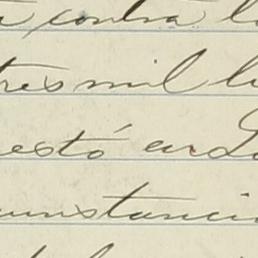 contra l
tres mil l
estó en L
unstanci